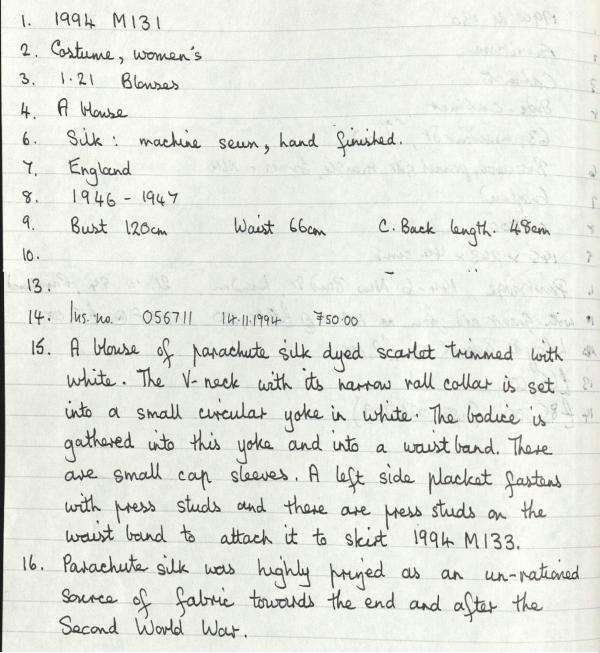 1. 1994 M131
2. Costume, women's
3. 1.21 Blouses
4. A blouse
6. Silk: machine sewn, hand finished.
7. England
8. 1946 - 1947
9. Bust 120cm Waist 66cm C. Back length. 48cm
10.
13.
14. Ins. no. 056711 14.11.1994 £50.00
15. A blouse of parachute silk dyed scarlet trimmed with
white. The V-neck with its narrow rall collar is set
into a small circular yoke in white. The bodice is
gathered into this yoke and into a waistband. There
are small cap sleeves. A left side placket fastens
with press studs and there are press studs on the
waist band to attach it to skirt 1994 M133.
16. Parachute silk was highly prized as an un-rationed
source of fabric towards the end and after the
Second World War.